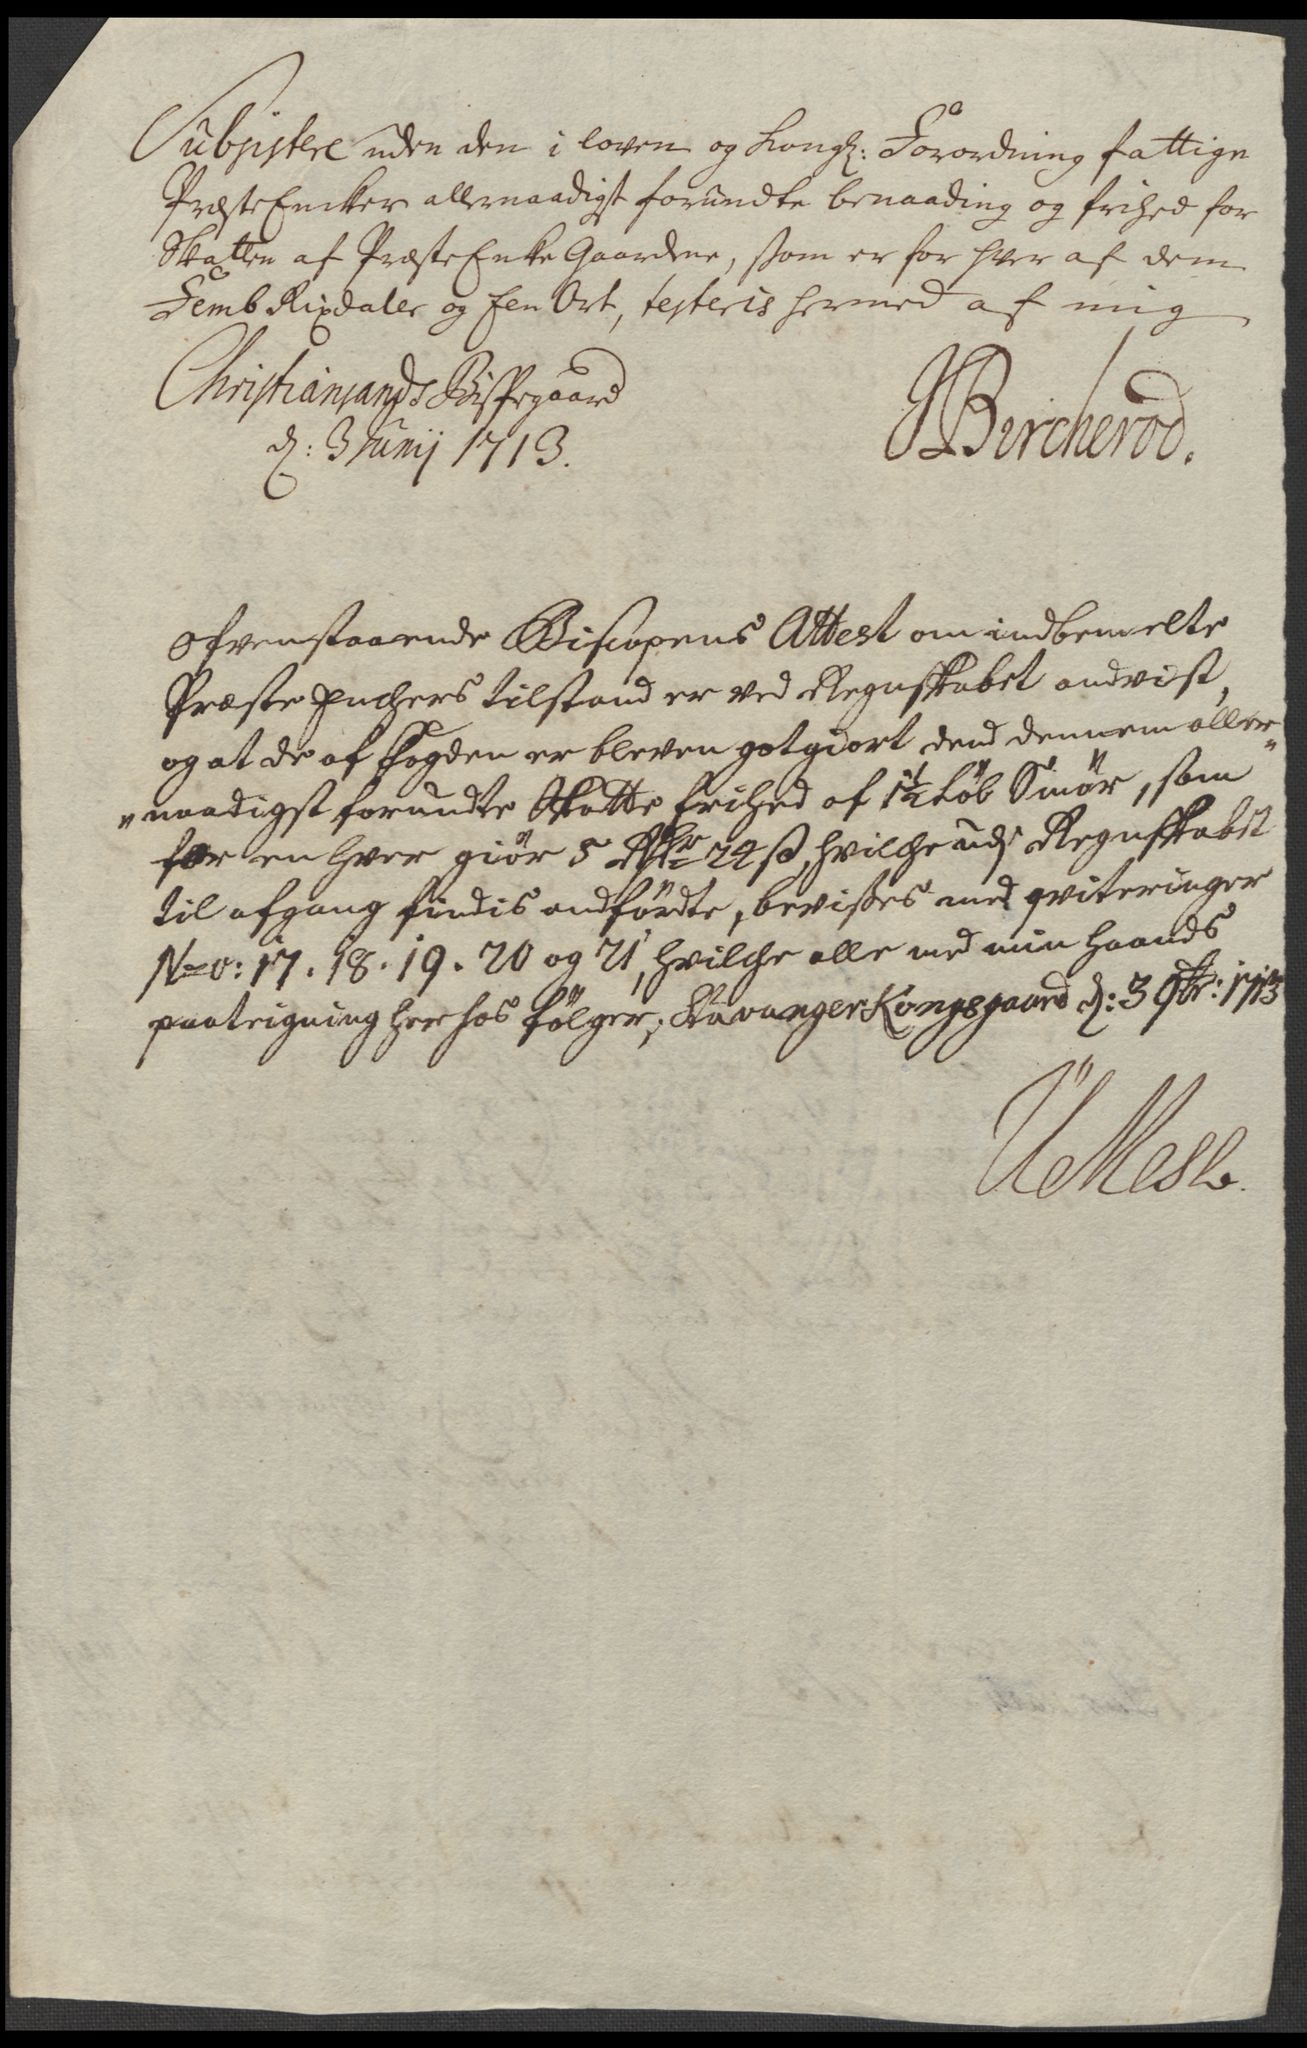 Subsistere uden den i loven og Kongl: Forordning fattige
PræsteEncker allernaadigst forundte benaading og frihed for
Skatten af PræsteEnke Gaardene, som er for hver af dem
Femb Rixdaler og Een Ort, testeris hermed af mig
Christiansands Bispegaard
d: 3 Junij 1713.
JBircherod.
Ofvenstaaende Biscopens Attest om indbemelte
Præste Enchers tilstand er ved Regnskabet andvist,
og at de af Fogden er bleven gotgiort dend dennem aller¬
naadigst forundte Skatte frihed af 1½ Løb Smør, som
for en hver giør 5 Rdr 24 ß, hvilche udj Regnskabet
til afgang findis andførdte, bevises med qviteringer
No: 17. 18. 19. 20 og 21, hvilche alle med min haands
paateigning her hos følger, Stavanger Kongsgaard d: 3 9br: 1713